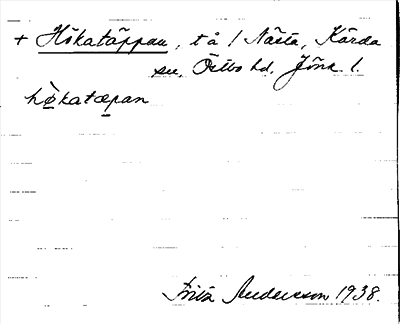 + Hökatäppan, tå / Nästa, Kärda
sn, Östbo hd, Jönk l.
hökatæpan
Fritz Andersson 1938.